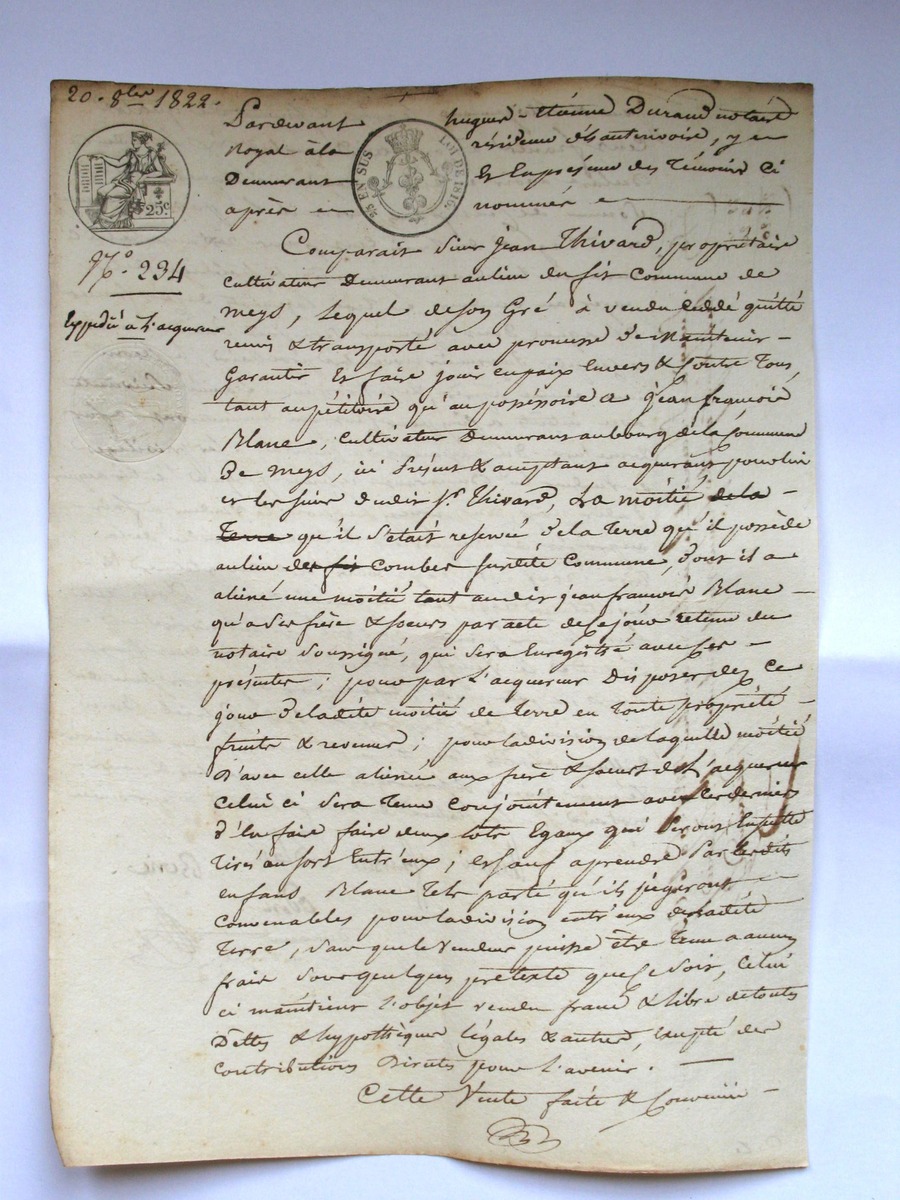 20. 8bre 1822.
Pardevant hugues-Etienne Durand notaire
royal à la résidence d'hauterivoire, y
Demeurant Et En présence des Témoins Ci
après nommés
25 EN SUS LOI DE 1816.
25c
No. 234
Expédié à L'acquereur
Comparait Sieur Jean Thivard, propriétaire
cultivateur Demeurant au lieu du fit Commune de
meys, Lequel de son Gré à vendu Ceddé quitté
remis & transporté avec promesse de Maintenir
Garantir Et faire jouir en paix Envers & Contre Tous,
tant au pétitoire qu'au possessoire a jean françois
Blanc, Cultivateur Demeurant au bourg de la Commune
De Meys, ici Présent & acceptant acquerant pour lui
et les siens dudit Sr. Thivard, La moitié de la
Terre qu'il s'était reservé de la Terre qu'il possède
au lieu des fit Combes susdite Commune, dont il a
aliéné une moitié tant audit jean francois Blanc
qu'a ses frère & soeurs par acte de Ce jour retenu du
notaire soussigné, qui sera Enregistré avec Ces
présentes; pour par L'acquereur Disposer dez Ce
jour De ladite moitié de Terre en Toute propriété
fruits & revenus; pour la division de laquelle moitié
D'avec celle alienée aux frère & soeurs de L'acquereur
Celui ci sera Tenu Conjointement avec ces derniers
D'En faire faire deux lots Egaux qui seront Ensuite
Tirés au sort Entr'eux; et sauf a prendre Par lesdits
enfans Blanc Tels parté qu'ils jugeront
Convenables pour la division entr'eux de ladite
Terre, sans que le Vendeur puisse être Tenu a aucun
frais sous quelques prétexte que Ce soit, Celui
ci maintient L'objet vendu franc & libre de toutes
Dettes & hypothèques Légales & autres, Excepté des
Contributions Directes pour L'avenir.
Cette Vente faite & Convenue